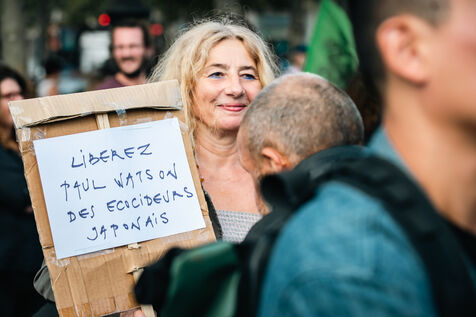 LIBEREZ
PAUL WATSON
DES ECOCIDEURS
JAPONAIS